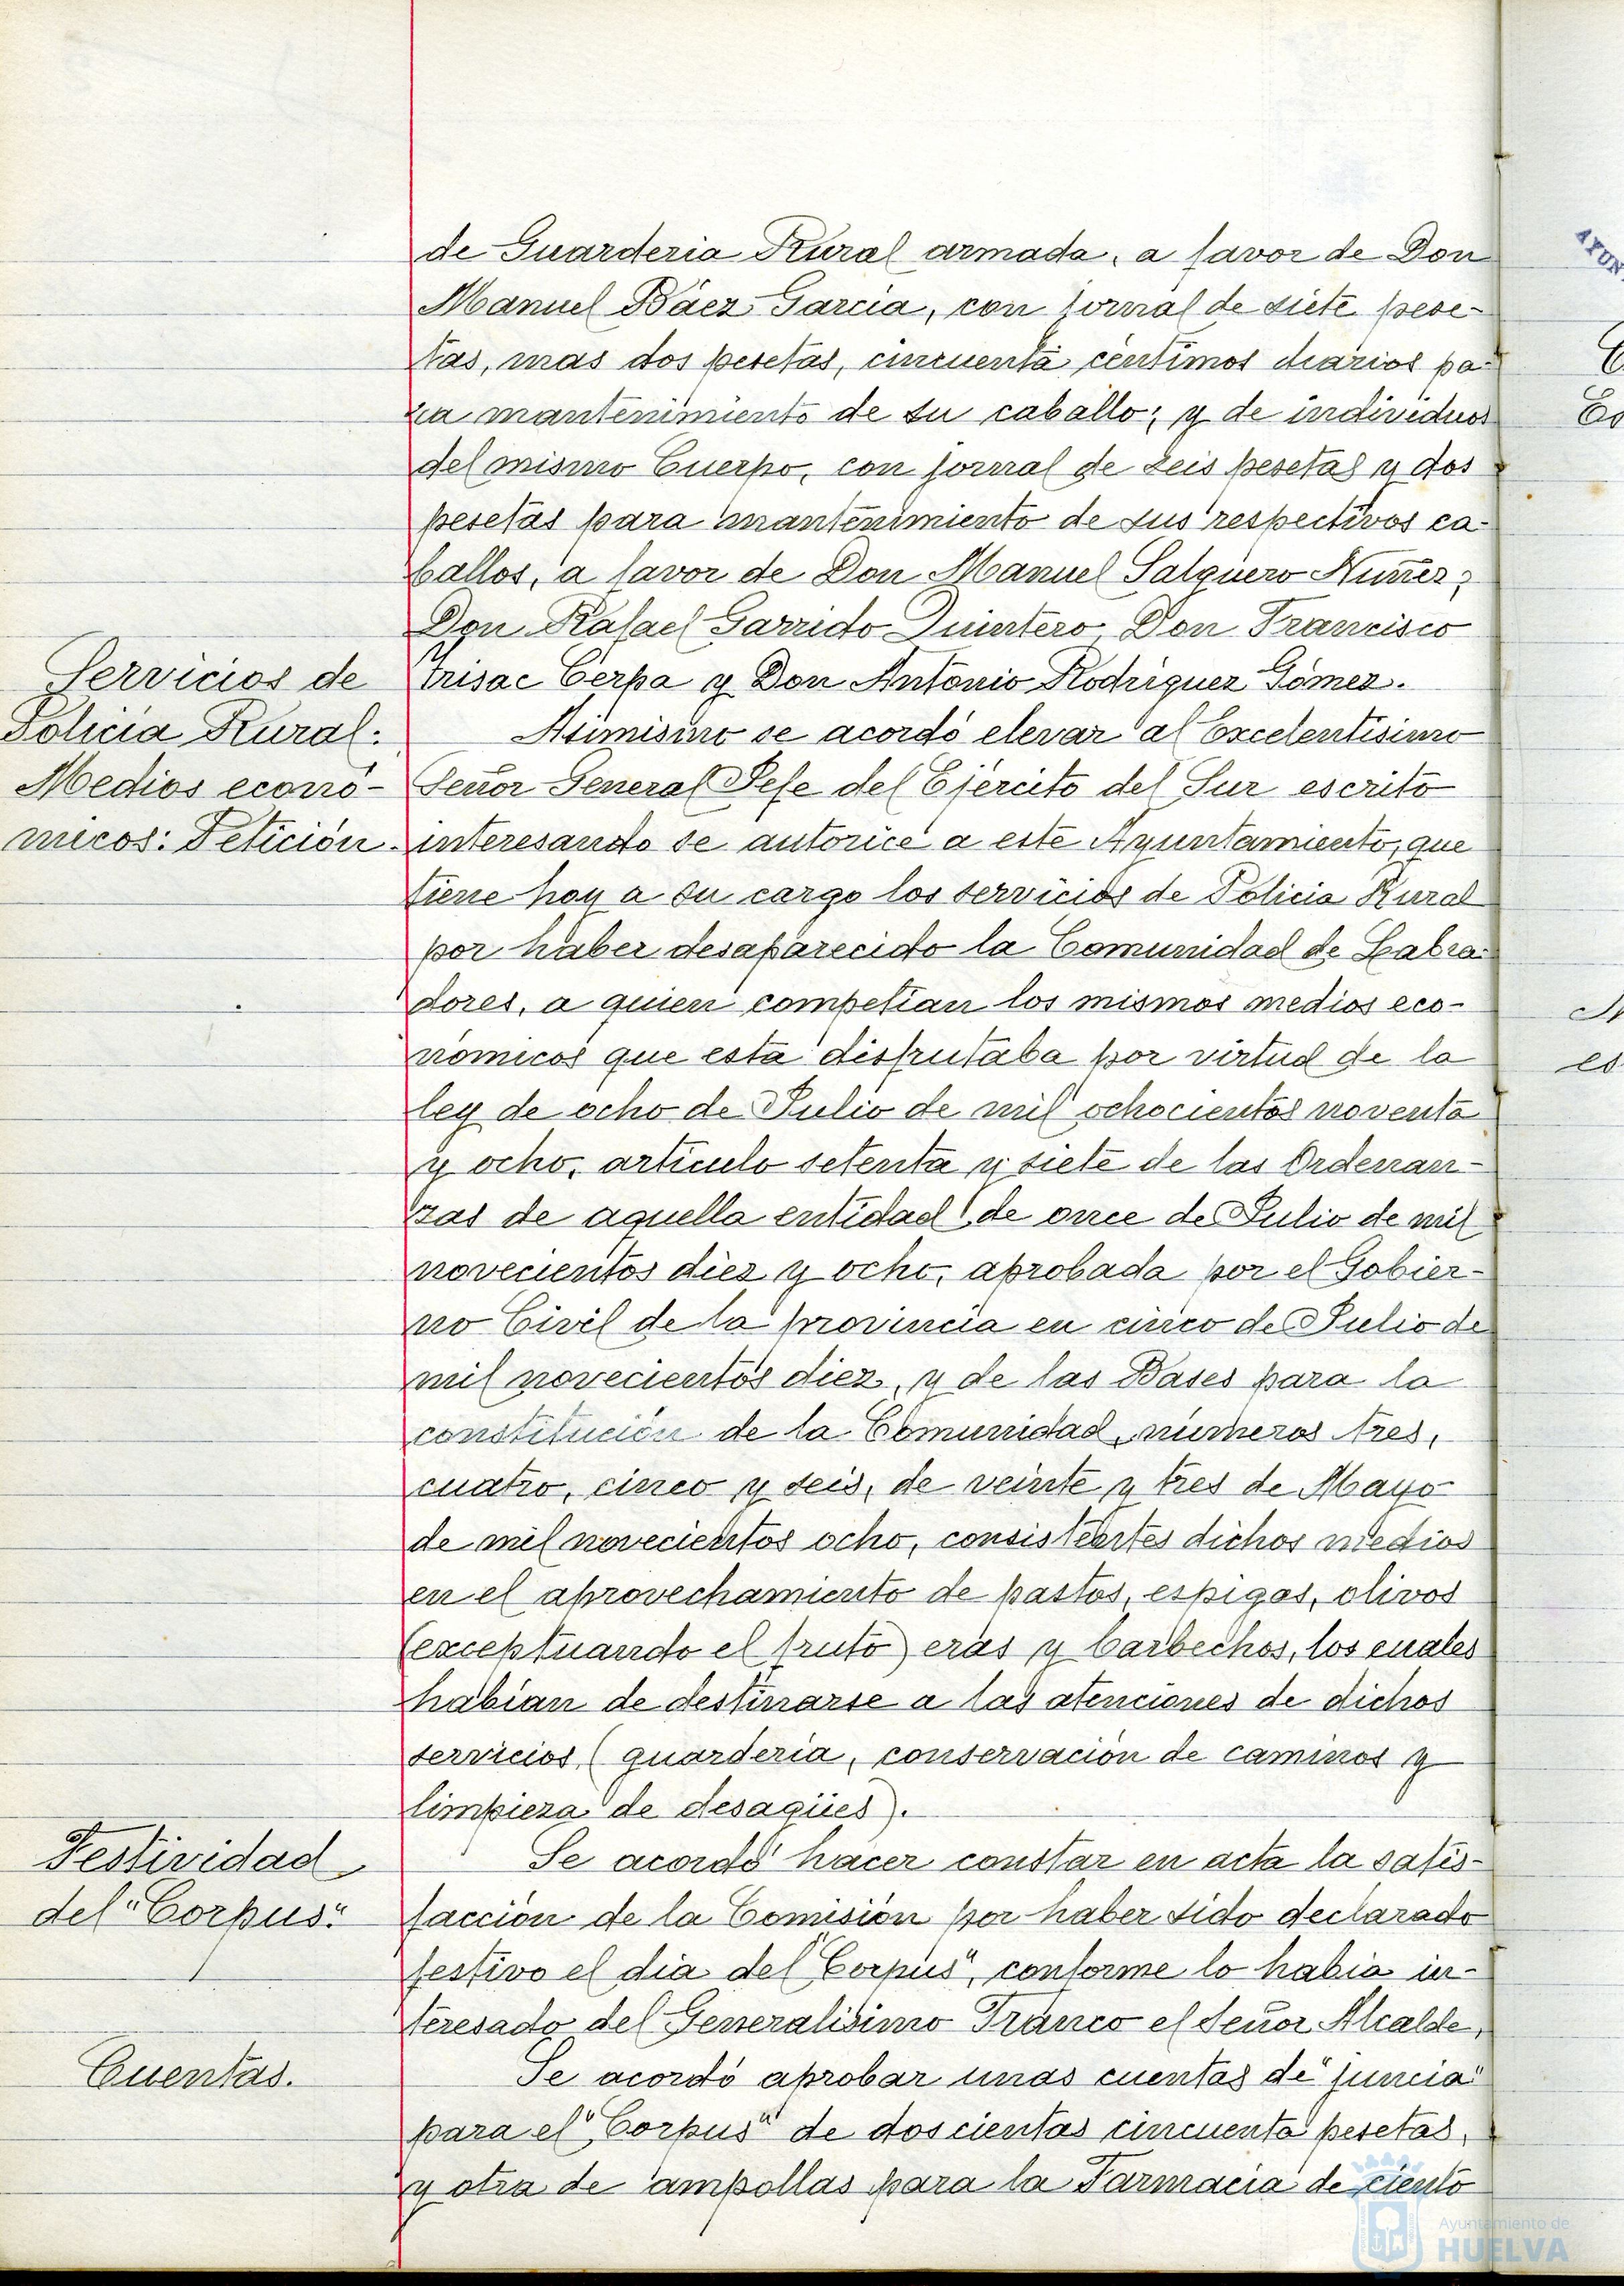 de Guarderia Rural armada, a favor de Don
Manuel Báez Garcia, con jornal de siete pese-
tas, mas dos pesetas, cincuenta centimos diarios pa-
ra mantenimiento de su caballo; y de individuos
del mismo Cuerpo, con jornal de seis pesetas y dos
pesetas para mantenimiento de sus respectivos ca-
ballos, a favor de Don Manuel Salguero Nuñez;
Don Rafael Garrido Quintero, Don Francisco
Cerpa y Don Antonio Rodriguez Gómez.
Servicios de
Policia Rural:
Medios econó-
micos: Petición.
Asimismo se acordó elevar al Excelentisimo
Señor General Jefe del Ejército del Sur escrito
interesando se autorice a este Ayuntamiento, que
tiene hoy a su cargo los servicios de Policia Rural
por haber desaparecido la Comunidad de Labra-
dores, a quien competian los mismos medios eco-
nómicos que esta disfrutaba por virtud de la
ley de ocho de Julio de mil ochocientos noventa
y ocho, articulo setenta y siete de las Ordenan-
zas de aquella entidad de once de Julio de mil
novecientos diez y ocho, aprobada por el Gobier-
no Civil de la provincia en cinco de Julio de
mil novecientos diez, y de las Bases para la
constitución de la Comunidad, números tres,
cuatro, cinco y seis, de veinte y tres de Mayo
de mil novecientos ocho, consistentes dichos medios
en el aprovechamiento de pastos, espigas, olivos
(exceptuando el fruto) eras y barbechos, los cuales
habian de destinarse a las atenciones de dichos
servicios (guarderia, conservación de caminos y
limpieza de desagües).
Festividad
del "Corpus".
Se acordó hacer constar en acta la satis-
facción de la Comisión por haber sido declarado
festivo el dia del "Corpus", conforme lo habia in-
teresado del Generalisimo Franco el Señor Alcalde.
Cuentas.
Se acordó aprobar unas cuentas de "juncia"
para el "Corpus" de doscientas cincuenta pesetas,
y otra de ampollas para la Farmacia de ciento
Ayuntamiento de
HUELVA